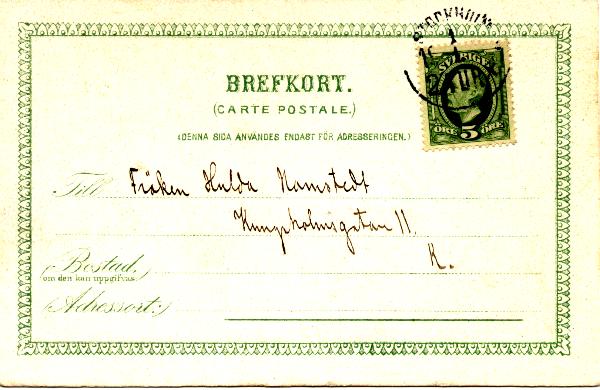 STOCKHOLM
1
SVERIGE
BREFKORT.
(CARTE POSTALE.)
ÖRE 5 ÖRE
(DENNA SIDA ANVÄNDES ENDAST FÖR ADRESSERINGEN.)
Till Fröken Hulda Ramstedt
Kungsholmsgatan 11.
K.
(Bostad,
om den kan uppgifvas.)
(Adressort:)